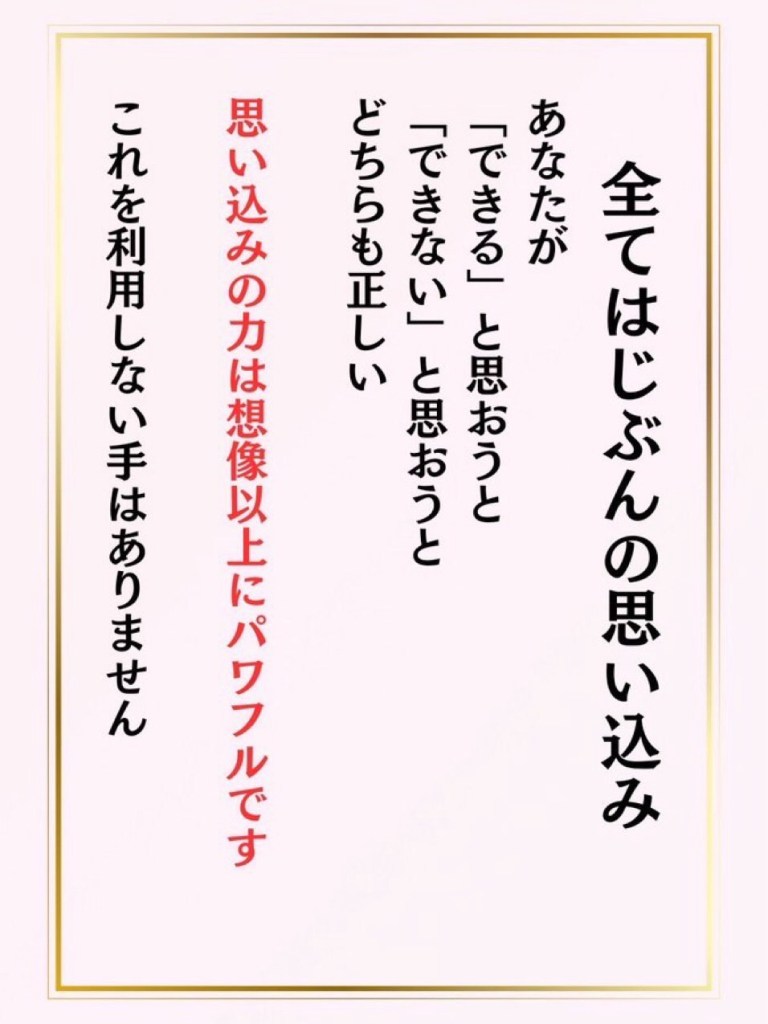 全てはじぶんの思い込み
あなたが
「できる」と思おうと
「できない」と思おうと
どちらも正しい
思い込みの力は想像以上にパワフルです
これを利用しない手はありません